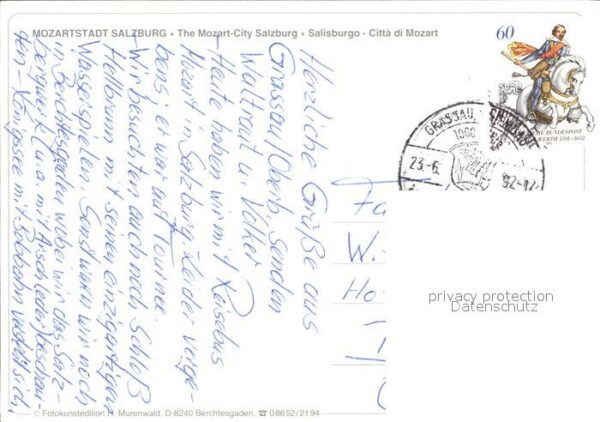 MOZARTSTADT SALZBURG • The Mozart-City Salzburg • Salisburgo - Città di Mozart
60
DEUTSCHE BUNDESPOST
WERTH 1591-1652
GRASSAU, CHIEMGAU
1000
23.-6. 92-12
Herzliche Grüße aus
Grassau/Oberb. senden
Waltraut u. Volker
Heute haben wir mit Reisebus
Mozart in Salzburg. Leider verge-
bens, er war auf Tournee.
Wir besuchten auch noch Schloß
Hellbrunn mit seinen einzigartigen
Wasserspielen. Sonst waren wir noch
in Berchtesgaden wobei wir das Salz-
bergwerk u.a. mit Arschleder) beschau-
den - Königsee mit Bobbahn versteht sich,
Fa
W
Ho
privacy protection
Datenschutz
© Fotokunstedition H. Murenwald, D-8240 Berchtesgaden, ☎ 08652/2194